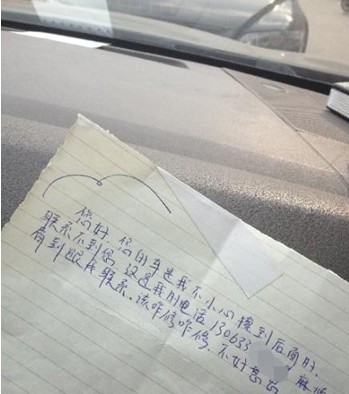 您好,您的车是我不小心撞到后面的,
联系不到您,这是我的电话130633 麻烦
看到跟我联系,该咋修咋修,不好意思